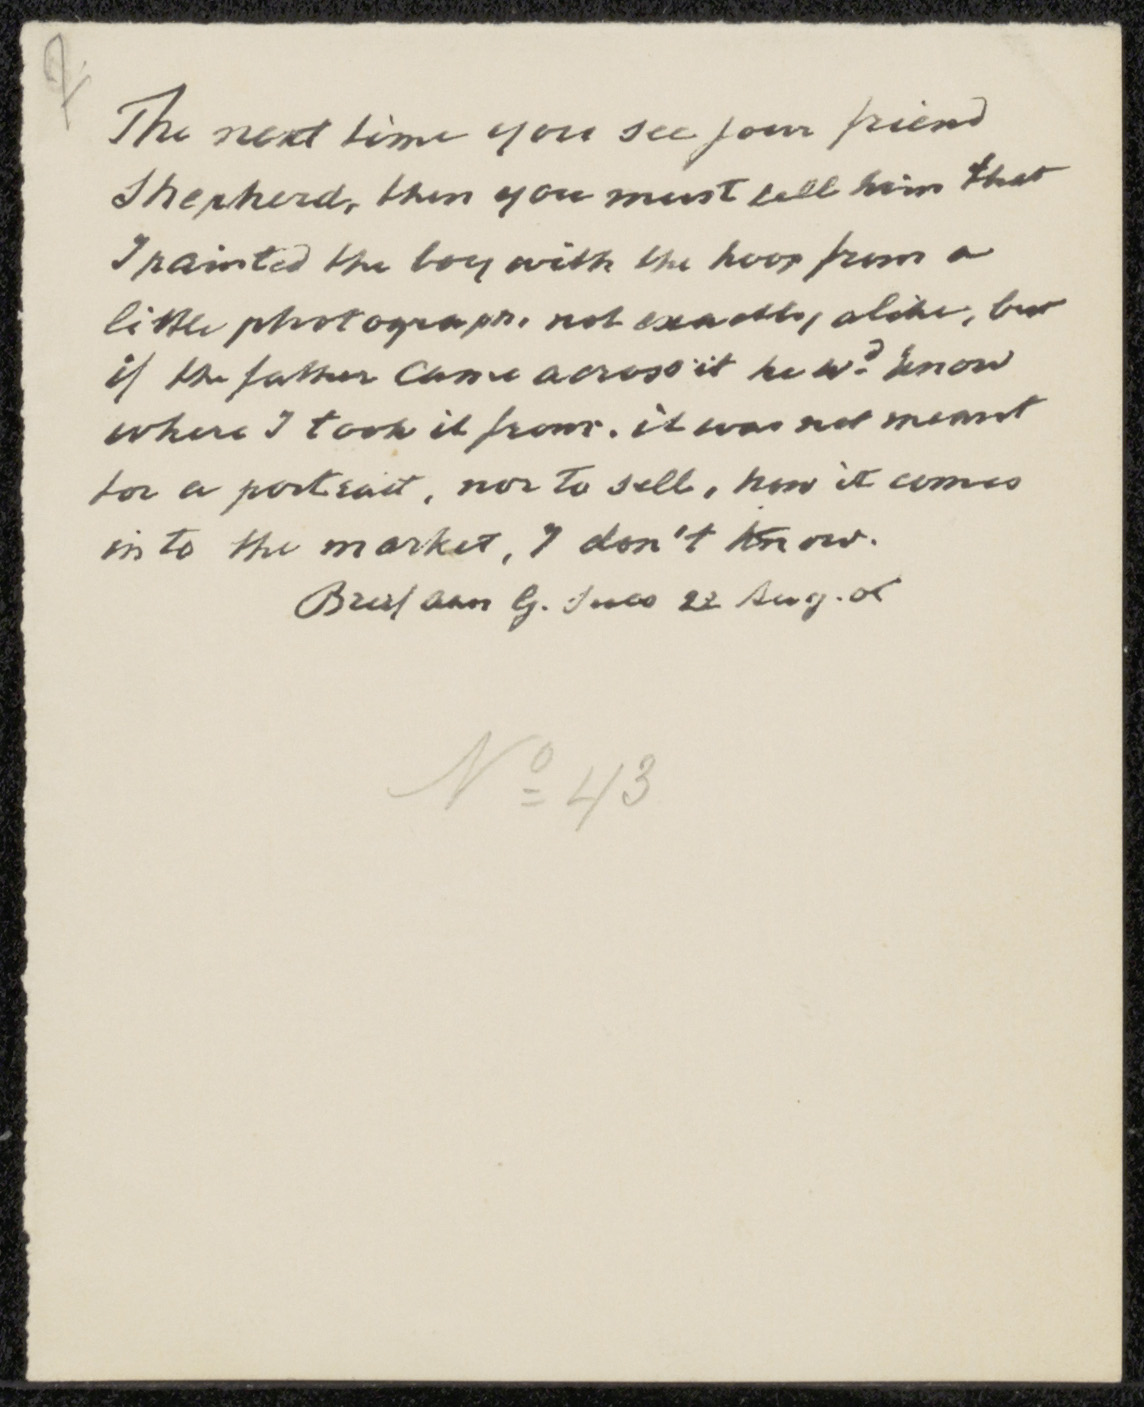 The next time you see your friend
Shepherd, then you must tell him that
I painted the boy with the hoop from a
little photograph. not exactly alike, but
if the father came across it he wd. know
where I took it from. it was not meant
for a portrait, nor to sell, how it comes
in to the market, I don't know.
Brief aan G. 22 Aug.
No 43